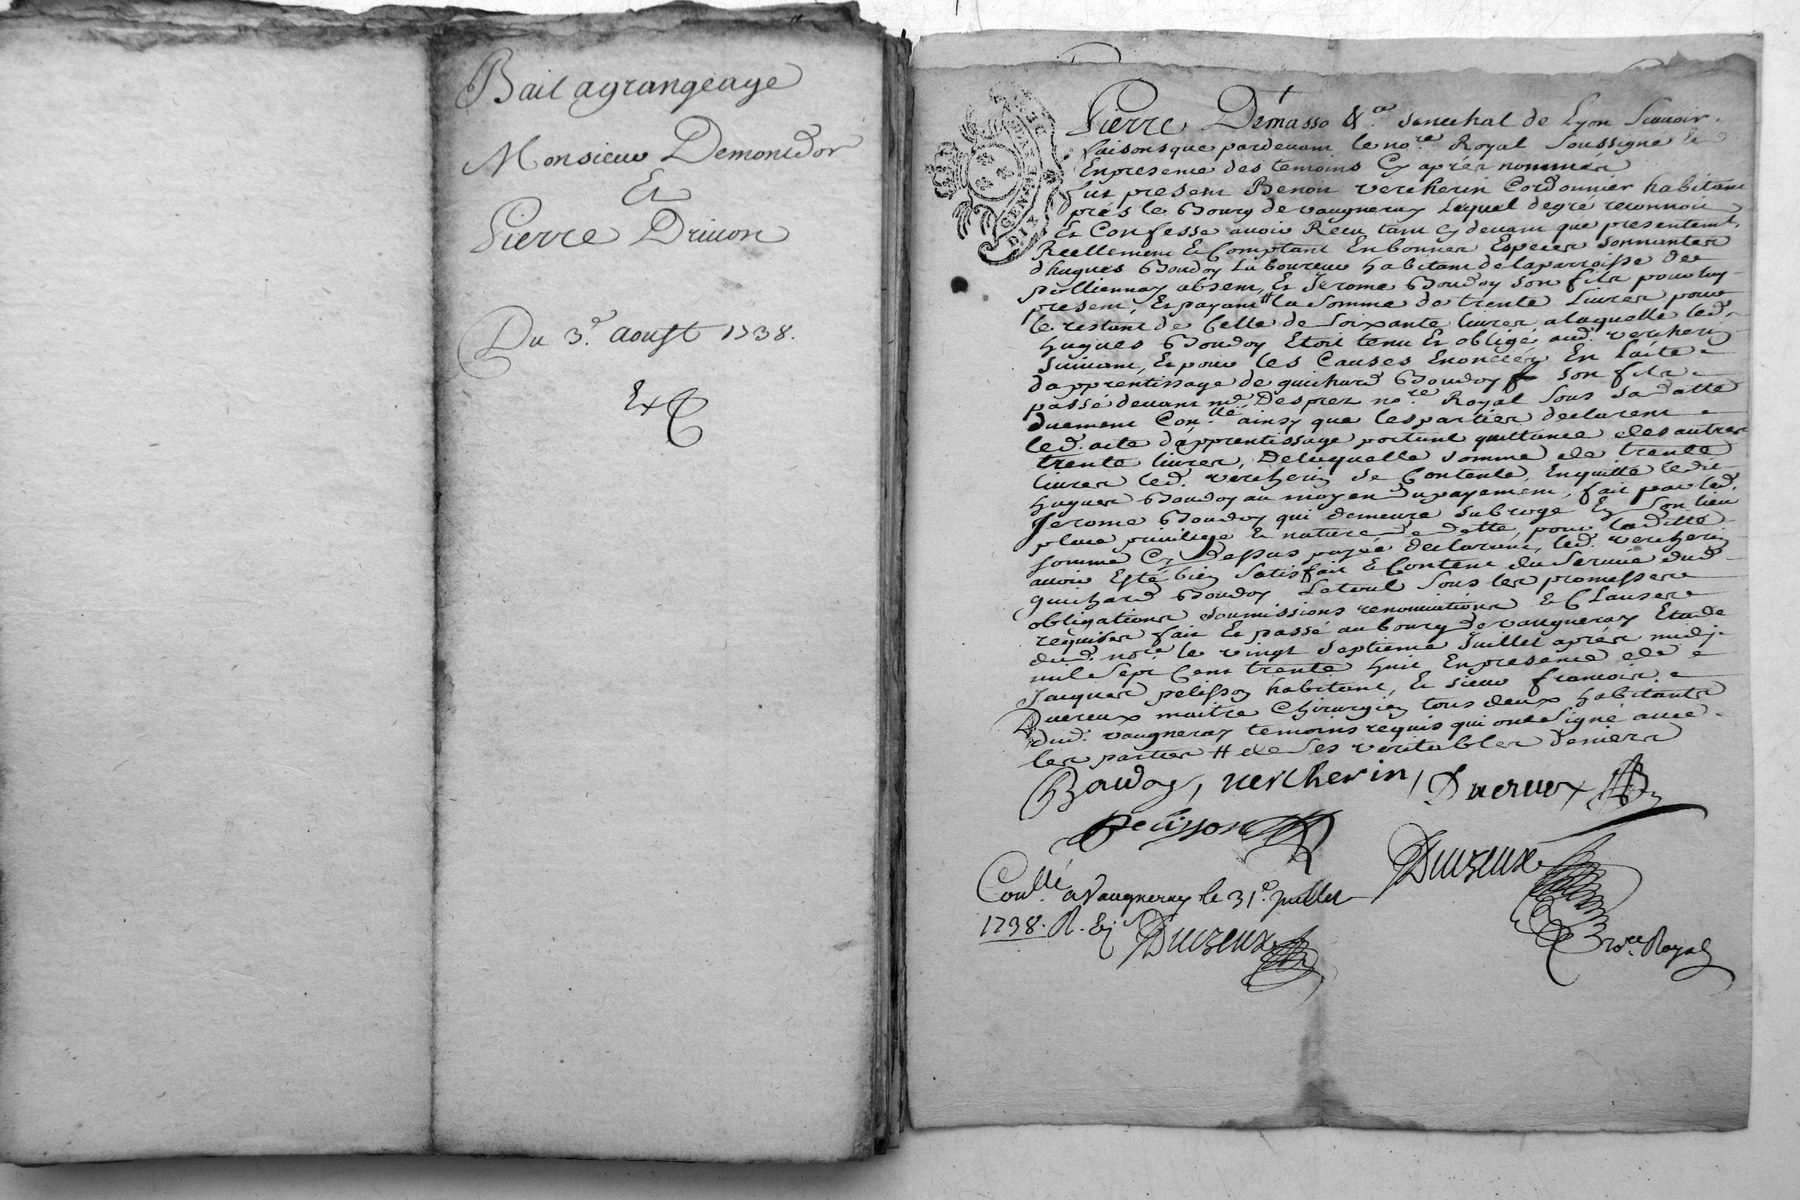 Bail agrangeage
Monsieur Demontdor
Et
Pierre Drivon
Du 3.e aoust 1738.
Ex
GENERALITE
DIX
Pierre Demasso &.a senechal de Lyon scavoir
faisons que pardevant le no.re Royal soussigné &
En presence des temoins Cy aprés nommés
fut present Benoit vercherin Cordonnier habitant
prés le Bourg de vaugneray Lequel de gré reconnoit
Et Confesse avoir Receu tant cy devant que presentement
Reellement & Comptant En bonnes Especes sonnantes
d'hugues Boudoy Laboureur habitant de la parroisse de
pollionnay absent, Et Jerome Boudoy son fils pour luy
present, Et payant # la somme de trente Livres pour
le restant de Celle de soixante livres a laquelle led.
hugues Boudoy Etoit tenu Et obligé aud. vercherin
suivant, Et pour les Causes Enoncées En L'acte
d'apprentissage de guichard Boudoy son fils
passé devant me. Desprez no.re Royal sous sa datte
duement Con.llé ainsy que les parties declarent
led. acte d'apprentissage portant quittance des autres
trente livres, De laquelle somme de trente
livres led. vercherin se Contente, En quitte ledit
hugues Boudoy au moyen du payement, fait par led.
Jerome Boudoy qui demeure subrogé En son lieu
place privilege & nature de dette pour laditte
somme Cy dessus payée declarant, led. vercherin
avoir Esté bien satisfait & Content du service dud.
guichard Boudoy Le tout sous les promesses
obligations soumissions renonciations & Clauses
requises fait Et passé au bourg de vaugneray Etude
dud. no.re le vingt septieme Juillet aprés midy
mil sept Cent trente huit En presence de
Jacques pelisson habitant, Et sieur francois
Duereux maitre Chirurgien tous deux habitants
dud. vaugneray temoins requis qui ont signé avec
les parties # de ses veritables deniers
Boudoy, vercherin, Duereux
Pelisson
Con.llé a Vaugneray le 31.e Juillet
1738. R. Ey
no.re Royal